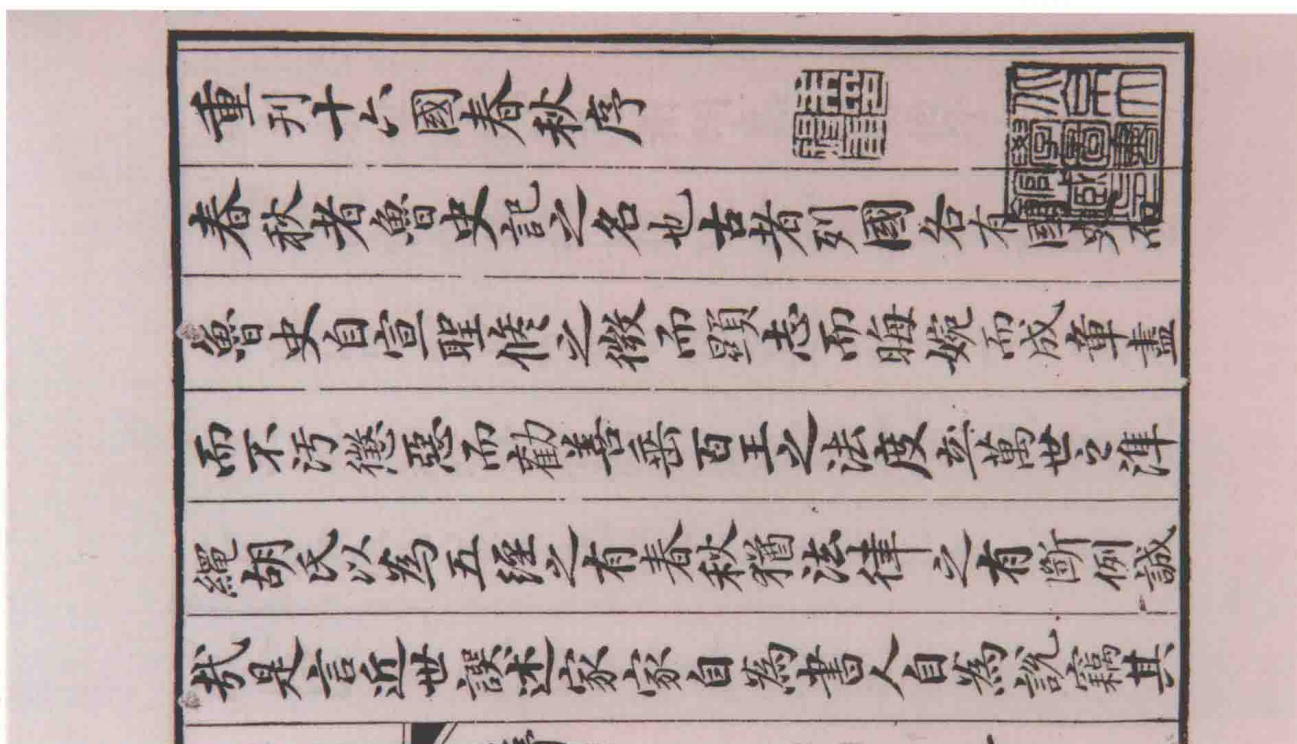 重刊十六國春秋序
春秋者魯史記之名也古者列國各有國史
魯史自宣聖修之微而顯志而晦婉而成章盡
而不汚懲惡而勸善垂百王之法度立萬世之準
繩胡氏以為五經之有春秋猶法律之有斷例誠
哉是言近世譔述家家自為書人自為說竊其